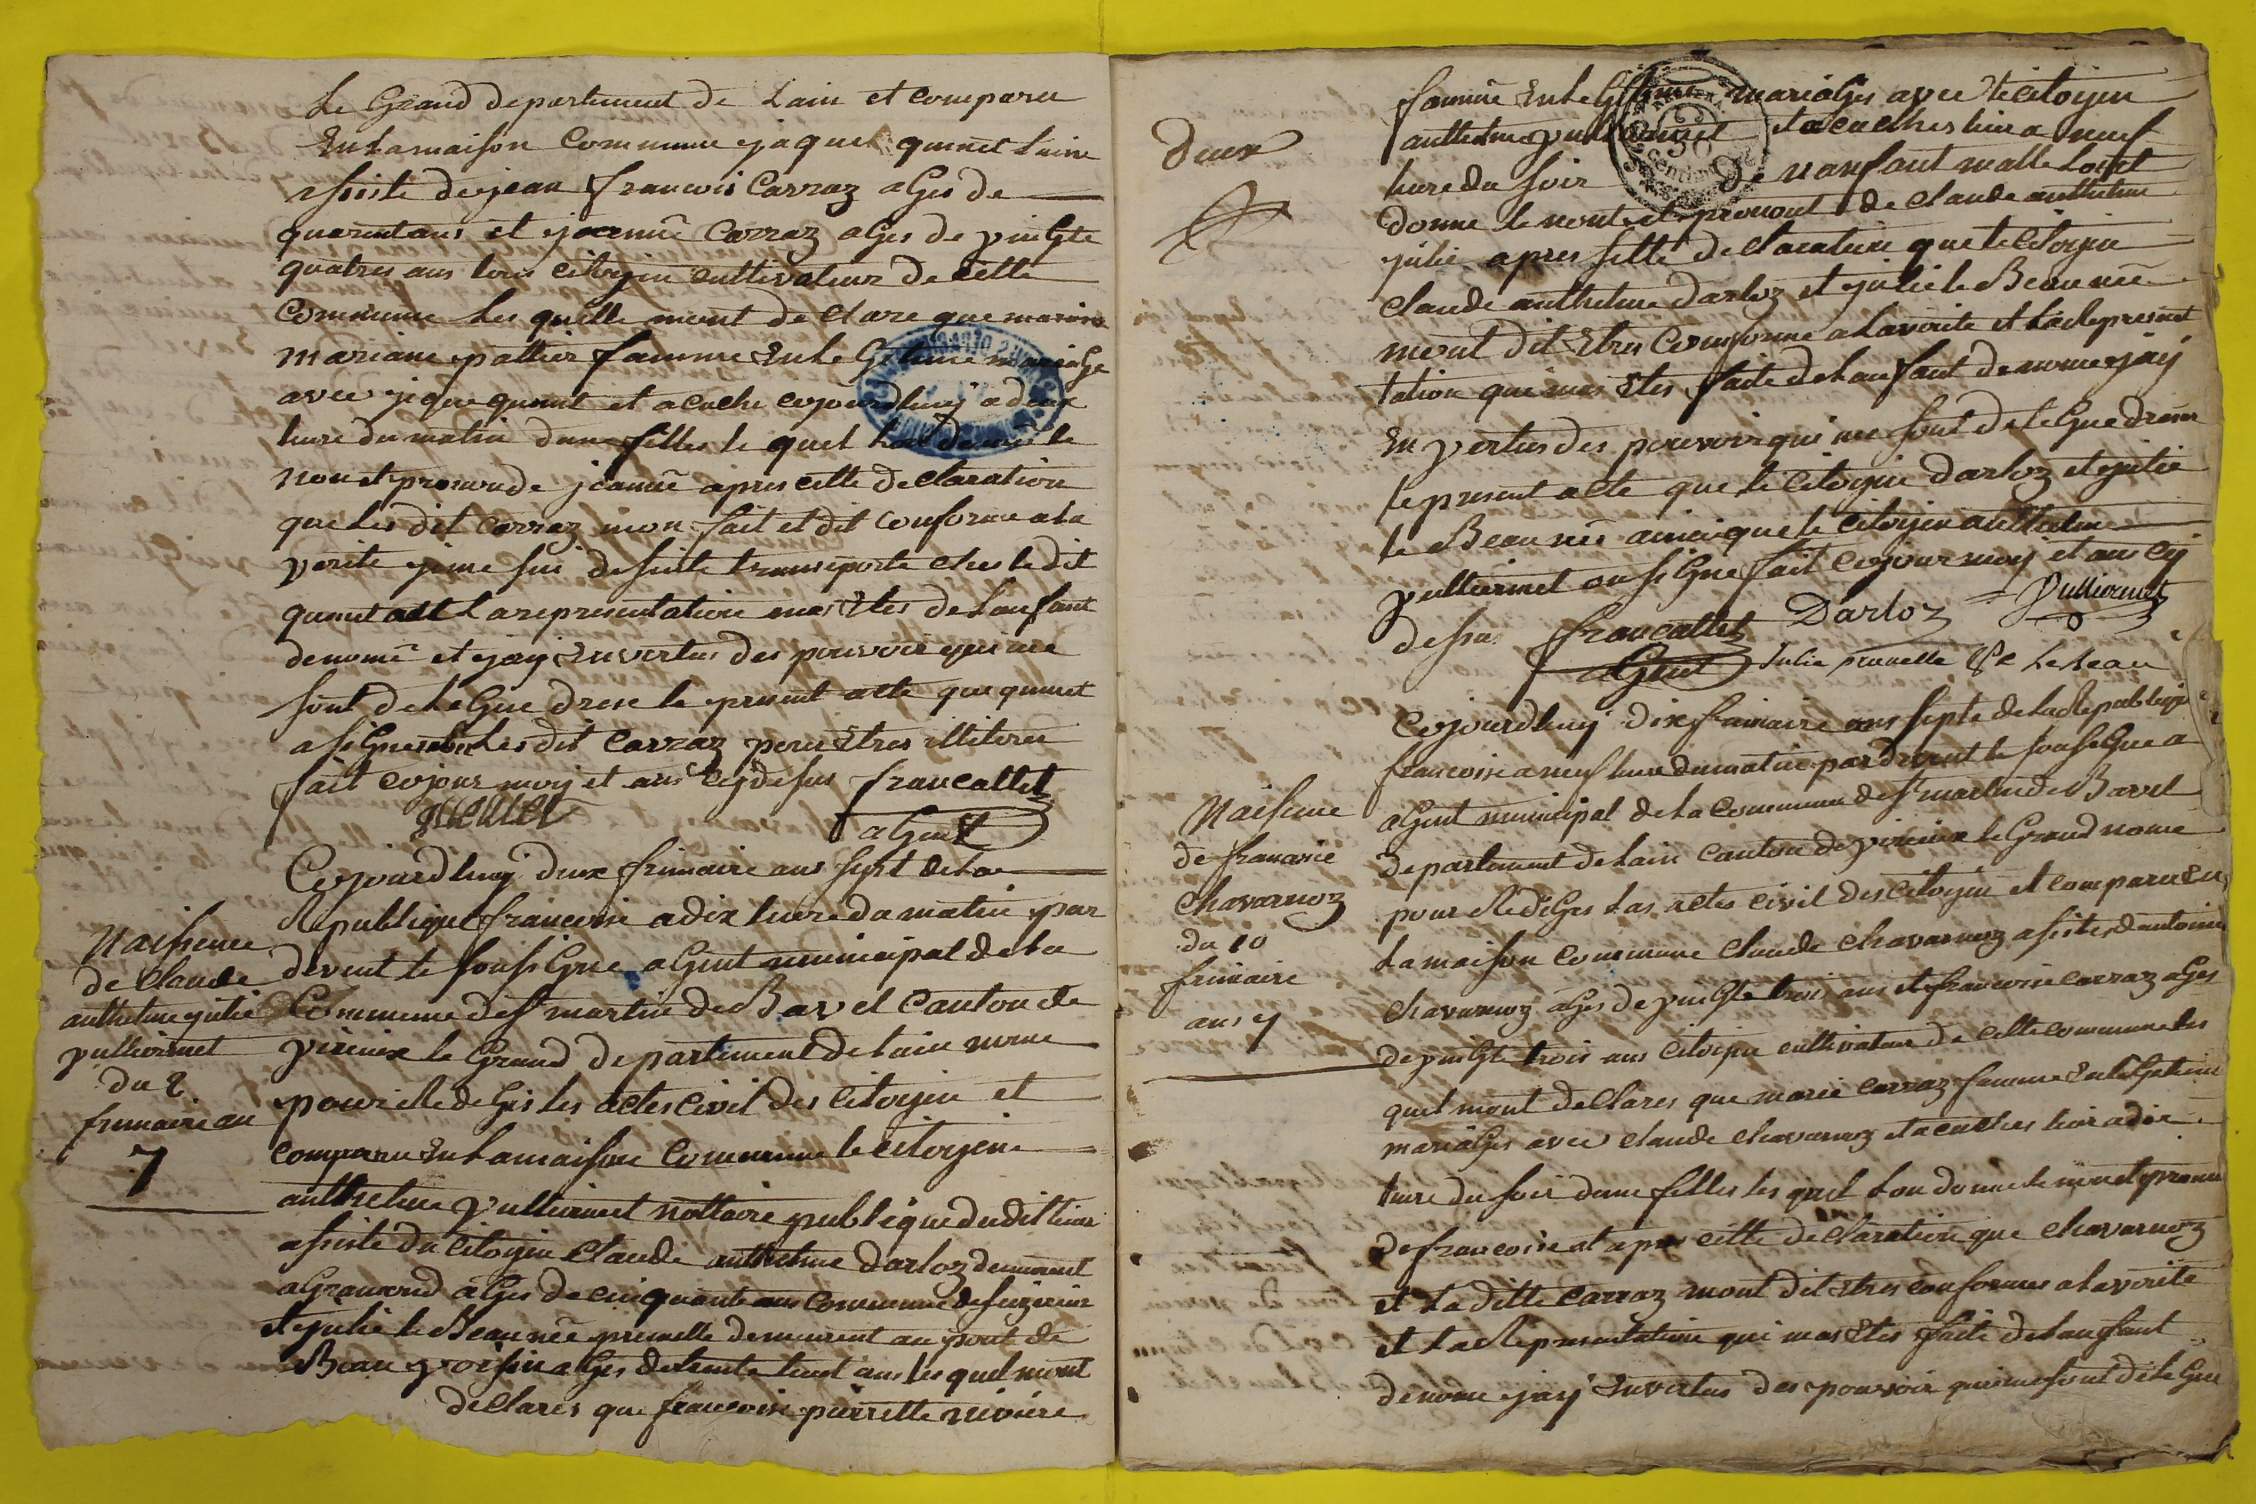 Le Grand departement de Lain et comparu
En Lamaison Commune jaque quenet Laine
assiste de jean francois Carraz ages de
quarentans et jeanne Carraz ages de vingte
quatres ans tous citoyin cultivateur de cette
Commune Les quelle mont de clare que
mariane pallier famme En Le Getime mariage
avec jaque quenet et a cuche cejourdhuy a deux
heure du matin dune filles le quel Lon donne le
non et pronon de jeanne apres cette de claration
que Les dit Carraz mon fait et dit conforme a La
verite je me sui de suite transporte ches le dit
quenet La representation mas Etes de Lanfant
denomé et jay En vertus des pouvoir qui me
sont de Le Gue drese le present acte que quenet
a si Gne Les dit Carraz pour Etres illitere
fait cejour moy et ans cy desus francallet
quenet agent
Cejourdhuy deux frimaire ans sept de La
Republique francoise a dix heure du matin par
devent le sousi Gne agent municipal de La
Commune de st martin de Bavel Canton de
virieux le Grand departement de Lain nome
pour Rede Ges Les actes civil des citoyin et
comparu En Lamaison Commune le citoyin
anthelme vulliermet nottaire publique dudit lieux
assiste du citoyin Claude anthelme Darloz demeurent
a Gramond ages de cinquante ans commune de
et julie le Beau neé prunelle demeurent au pont de
Beau voisin ages de trente huit ans les quel mont
declares que francoise pierrette riviere
Naissence
de Claude
anthelme julie
vulliermet
du 2
frimaire an
7
Deux
famme En Le Getime mariages avec le citoyin
anthelme vulliermet et a cuches hier a neuf
heure du soir de nanfant malle Lon et
donne le nont et prenont de Claude anthelme
julie apres sette declarature que le citoyin
Claude anthelme Darloz et julie le Beau neé
mont dit Etres Comforme a La verite et La Represent
tation qui mas Etes faite de Lanfant denome jay
En vertus des pouvoir qui me sont de Le Gue dreser
le present acte que le citoyin Darloz et julie
le Beau neé ainci que le citoyin anthelme
vulliermet on si Gne fait cejour moy et ans cy
desus francallet Darloz Vulliermet
agent Julie prunelle Le Beau
Cejourdhuy dix frimaire ans septe de La Republique
francoise a neuf heure du matin par devent le sousi Gne a
agent municipal de La Commune de st martin de Bavel
departement de Lain canton de virieux le Grand nome
pour Rediges Les actes civil des citoyin et comparu En
Lamaison Commune Claude Chavarnoz assistes dantoine
Chavarnoz ages de vingte trois ans et francoise carraz ages
de vingte trois ans citoyin cultivateur de cette commune Les
quel mont declares que marie carraz famme En Le Getime
mariages avec Claude Chavarnoz et a cuches hier a dix
heure du soir dune filles les quel Lon donne le nom et prenom
de francoise et apres cette de claration que Chavarnoz
et La ditte carraz mont dit Etres conformes a La verite
et La Representation qui mas Etes faite de Lanfant
denome jay En vertus des pouvoir qui me sont de Le Gue
Naissence
de francoise
Chavarnoz
du 10
frimaire
ans 7